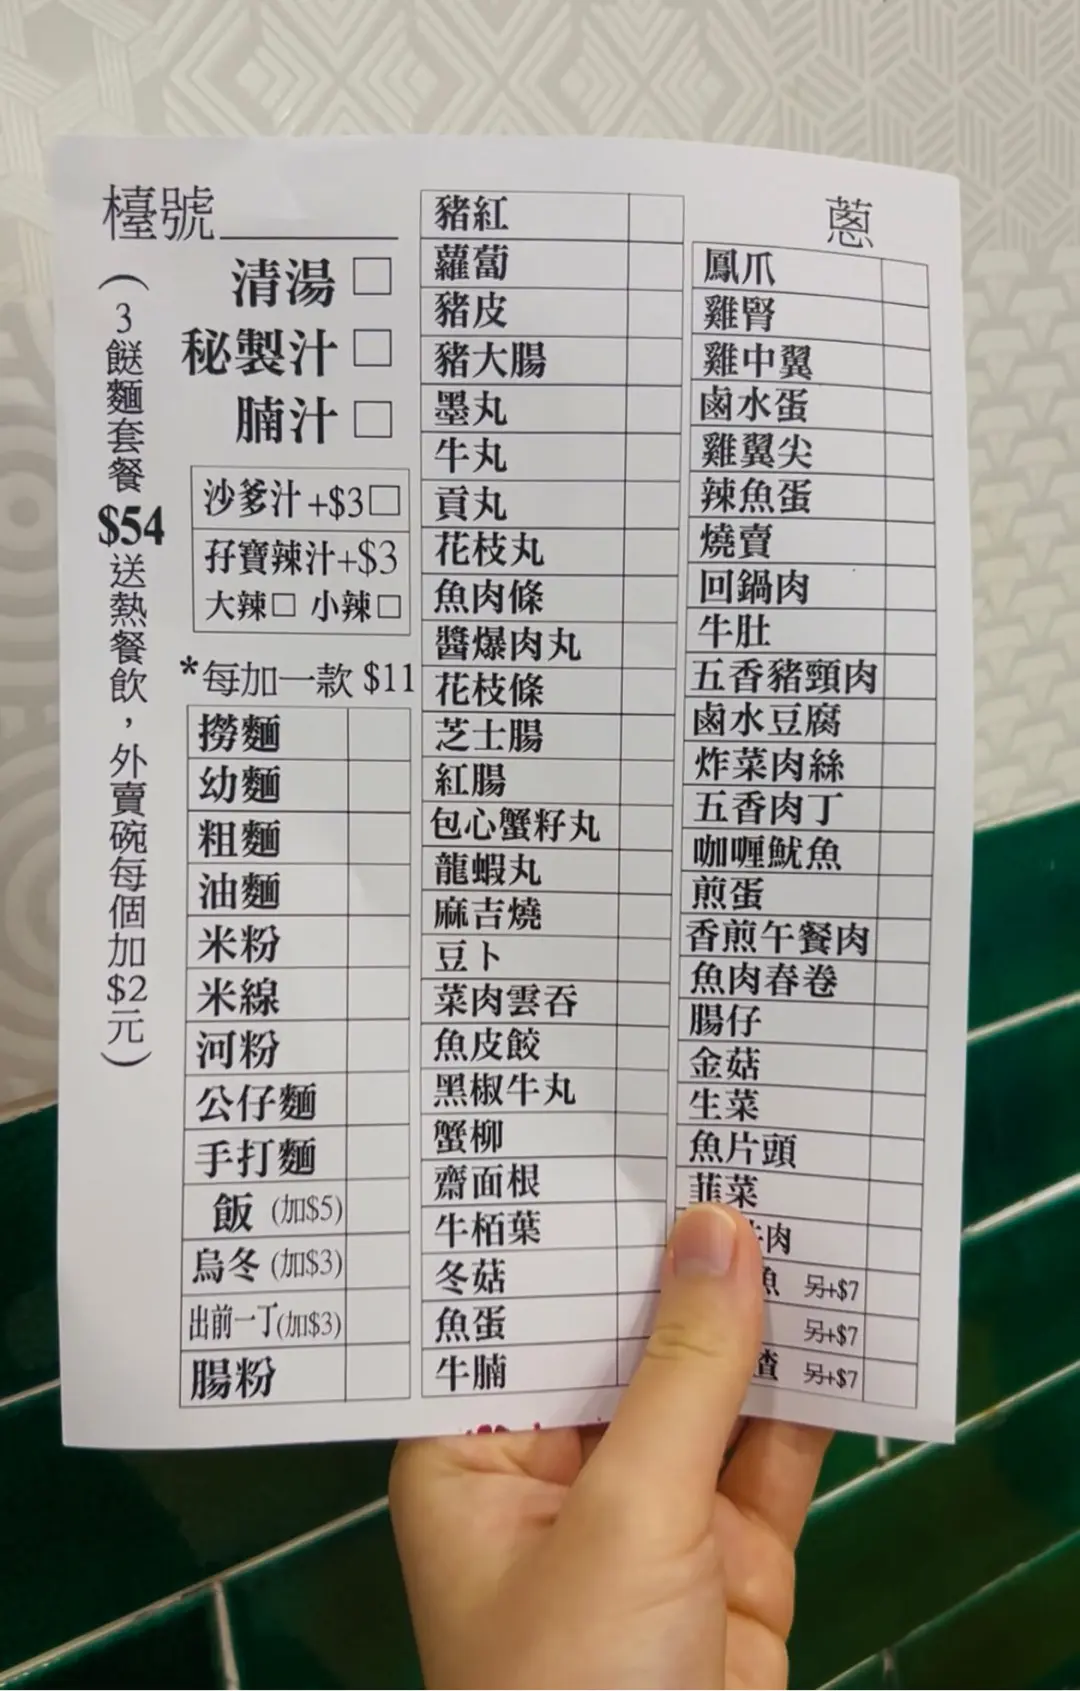 檯號
清湯
秘製汁
腩汁
沙爹汁+$3
孖寶辣汁+$3
大辣 小辣
*每加一款 $11
(3餸麵套餐$54送熱餐飲，外賣碗每個加$2元)
撈麵
幼麵
粗麵
油麵
米粉
米線
河粉
公仔麵
手打麵
飯 (加$5)
烏冬 (加$3)
出前一丁(加$3)
腸粉
豬紅
蘿蔔
豬皮
豬大腸
墨丸
牛丸
貢丸
花枝丸
魚肉條
醬爆肉丸
花枝條
芝士腸
紅腸
包心蟹籽丸
龍蝦丸
麻吉燒
豆卜
菜肉雲吞
魚皮餃
黑椒牛丸
蟹柳
齋面根
牛栢葉
冬菇
魚蛋
牛腩
蔥
鳳爪
雞腎
雞中翼
鹵水蛋
雞翼尖
辣魚蛋
燒賣
回鍋肉
牛肚
五香豬頸肉
鹵水豆腐
炸菜肉絲
五香肉丁
咖喱魷魚
煎蛋
香煎午餐肉
魚肉春卷
腸仔
金菇
生菜
魚片頭
韮菜
肉
魚 另+$7
另+$7
渣 另+$7